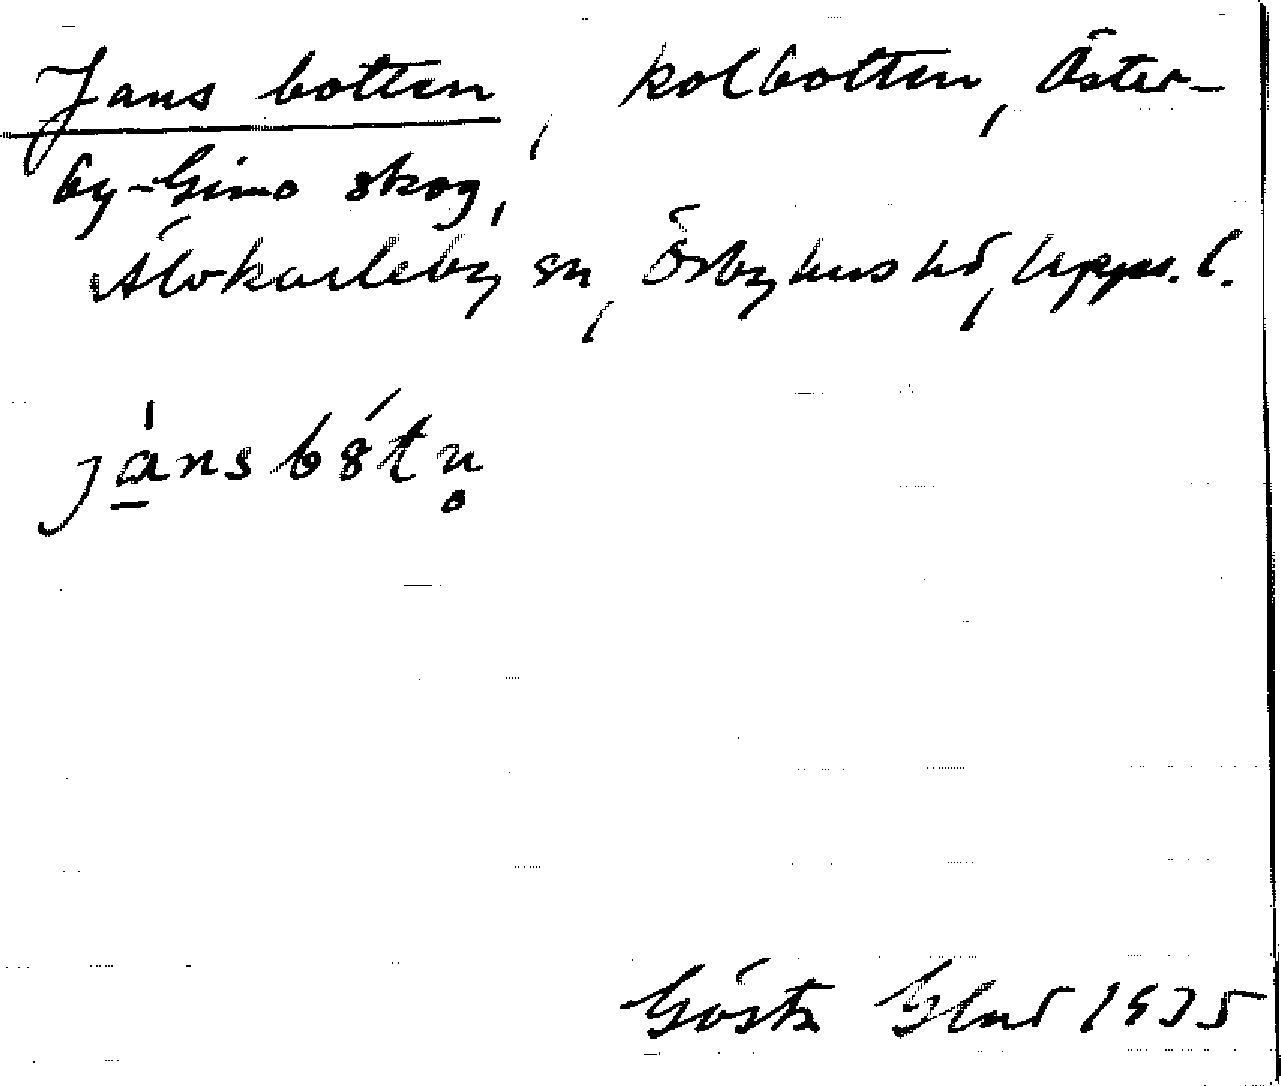 Jans botten, kolbotten, Öster-
by-Gimo skog,
Älvkarleby sn, Örbyhus hd, Upps. l.
jánsbótn̥
Gösta 1935